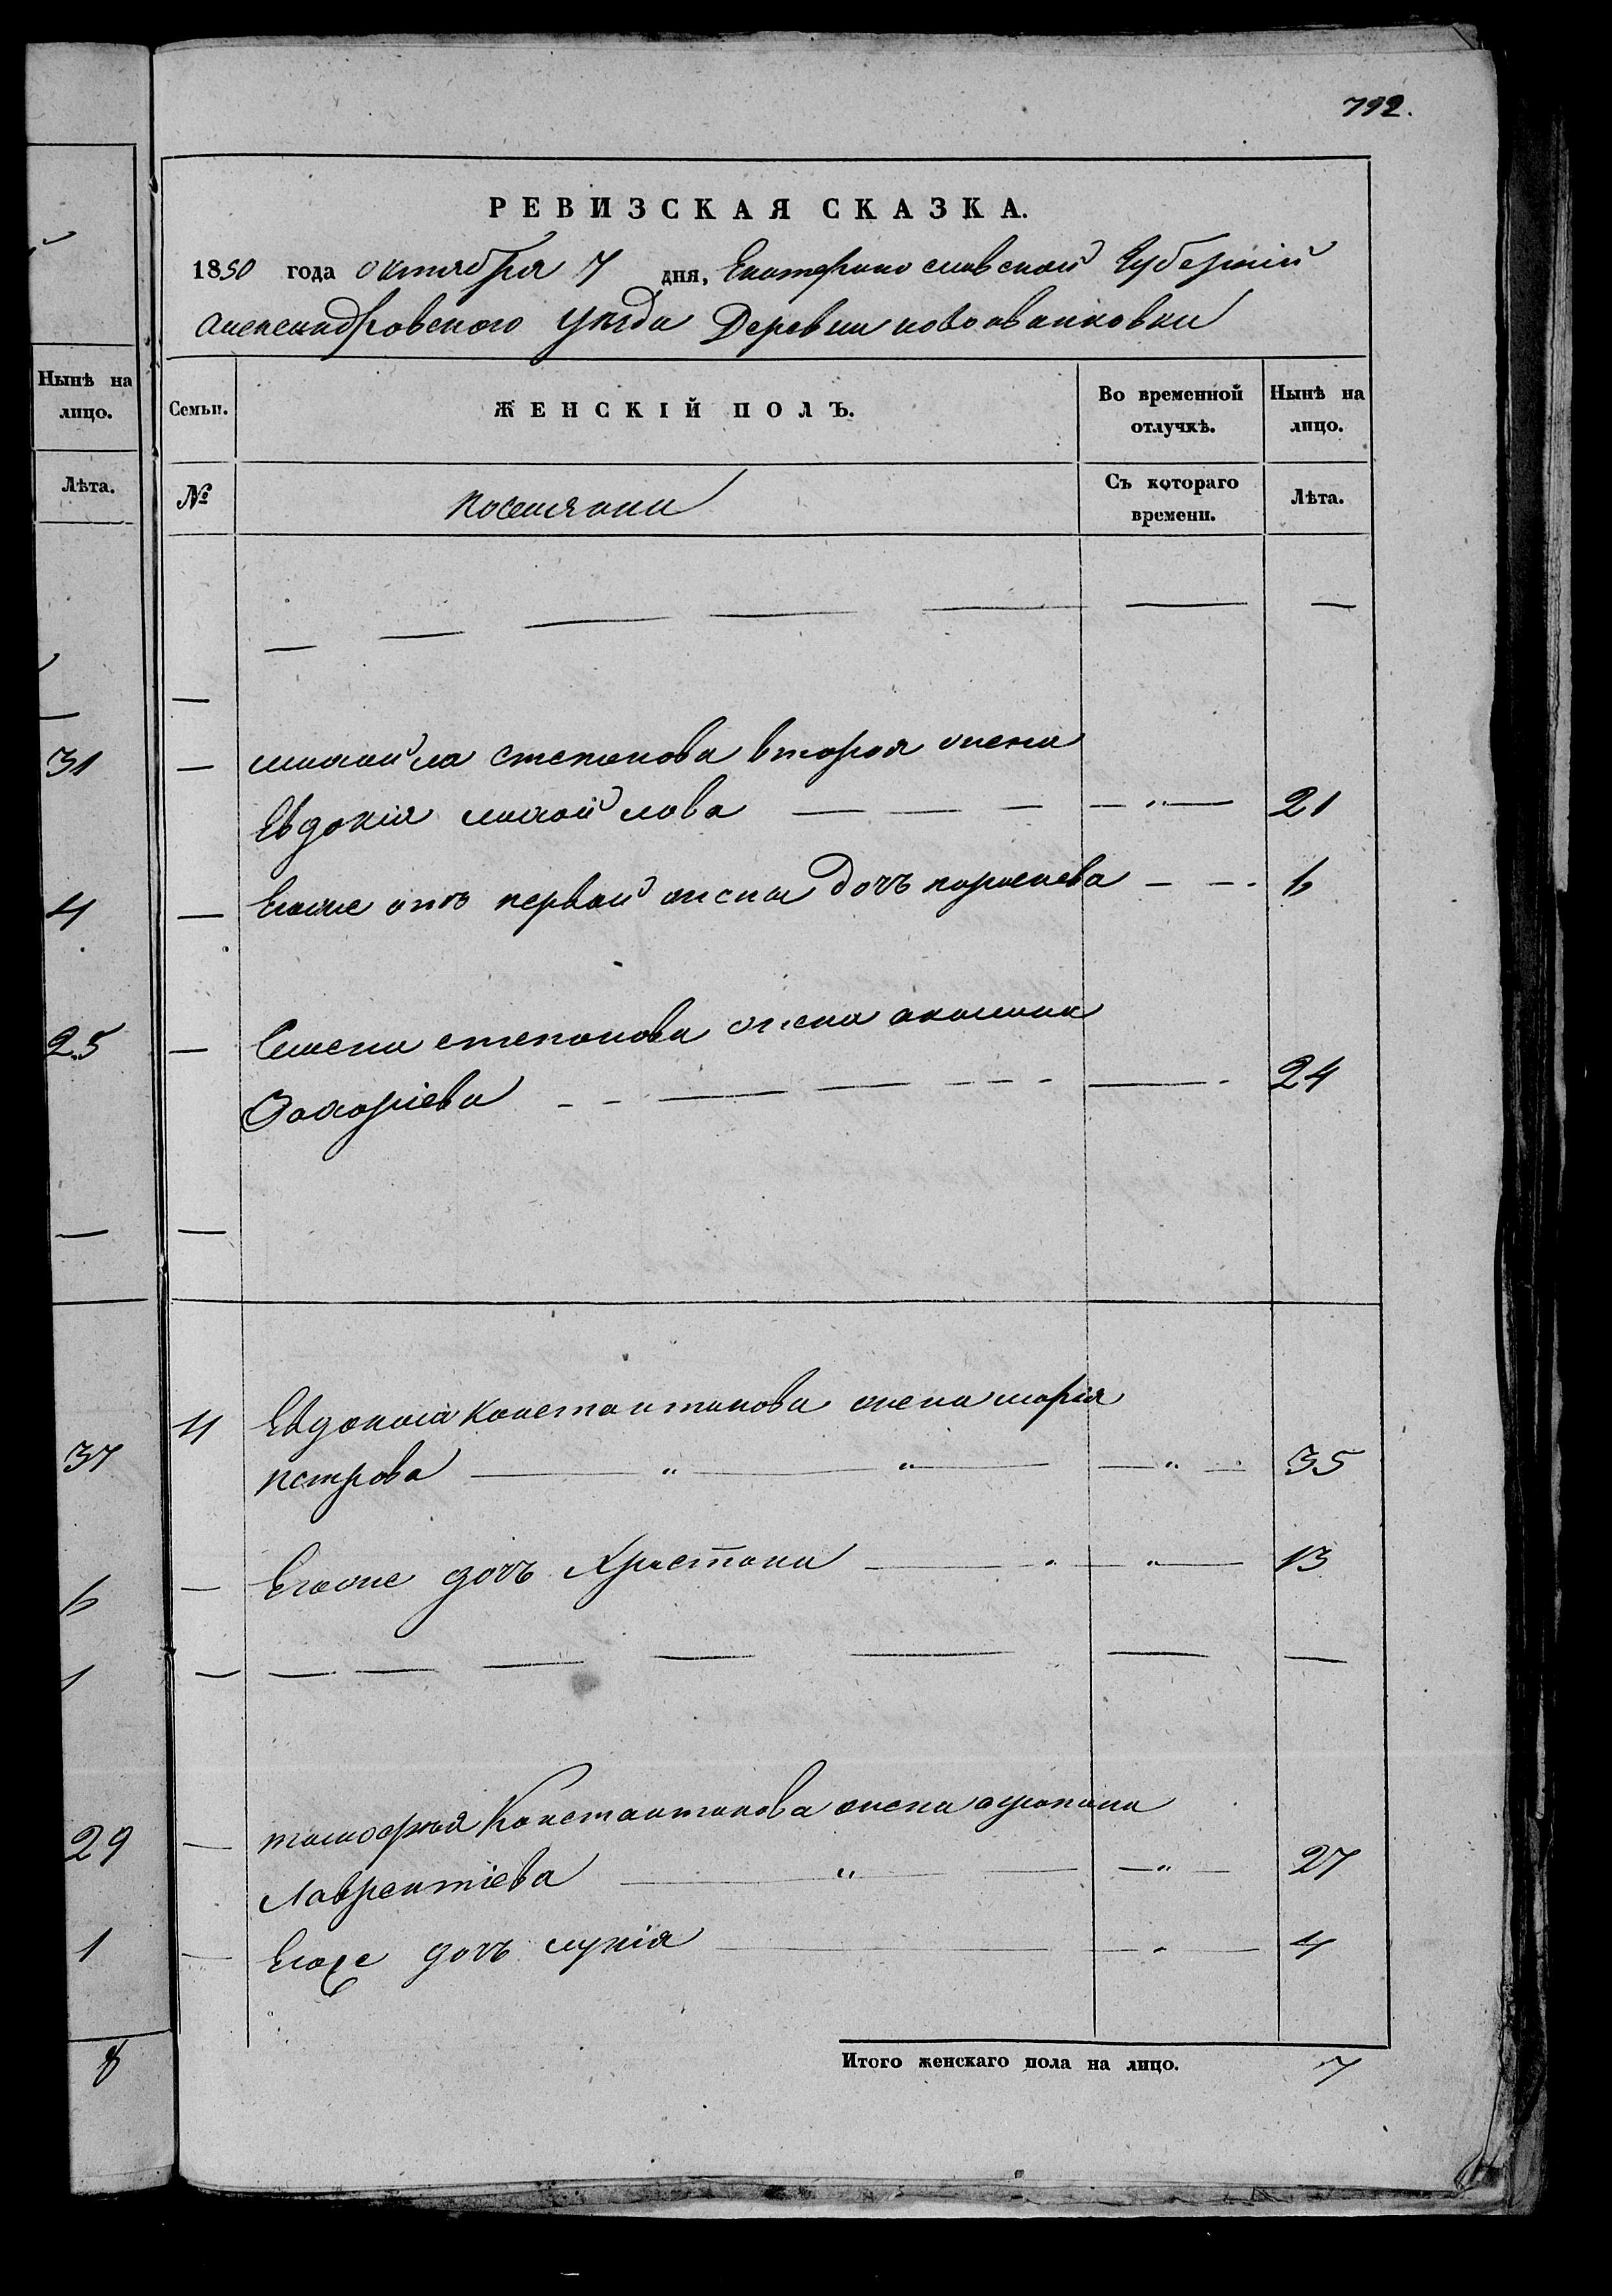 792.
РЕВИЗСКАЯ СКАЗКА.
1850 года октября 7 дня, Екатеринославской Губерніи
Александровского уѣзда Деревни новоивановки
Нынѣ на лицо.
Лѣта.
Семьи.
ЖЕНСКІЙ ПОЛЪ.
Во временной отлучкѣ.
Нынѣ на лицо.
№
поселяни
Съ котораго времени.
Лѣта.
31 — михайла степанова вторая жена
Евдокія михайлова — — — — „ — 21
4 — Егоже отъ первой жены дочъ параскева — — 6
25 — Семена степанова жена акилина
Захаріева — — — — — 24
4 Евдокима Константинова жена марія
37 петрова — „ — „ — „ — 35
6 — Егоже дочъ Христина — „ — 13
1
29 — тимофея Константинова жена агрипина
Лаврентіева — „ — „ — 27
1 — Егоже дочъ лукія — „ — 4
8 Итого женскаго пола на лицо. 7